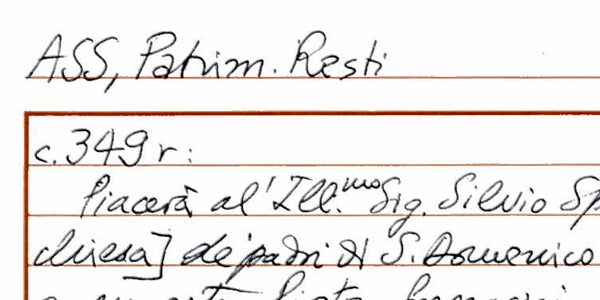 ASS, Patrim. Resti
c. 349 r:
Piacerà al' Ill.mo Sig. Silvio Sp
chiesa] de padri di S. Domenico